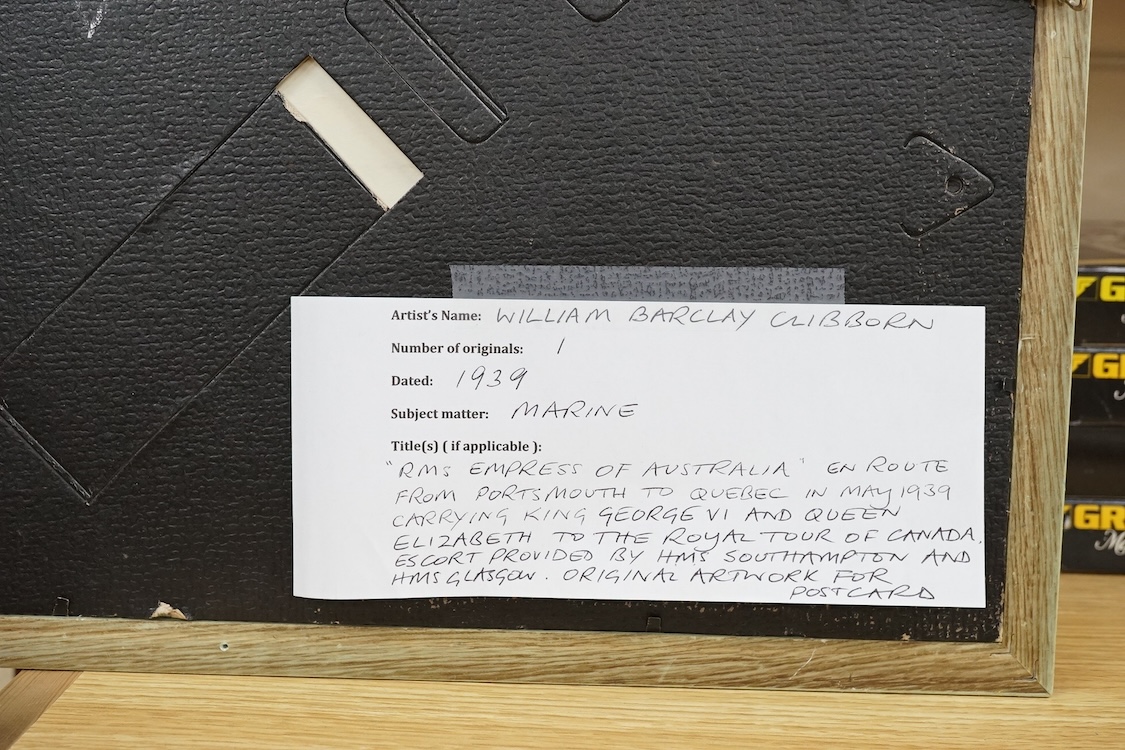 Artist's Name: WILLIAM BARCLAY CLIBBORN
Number of originals: 1
Dated: 1939
Subject matter: MARINE
Title(s) ( if applicable ):
"RMS EMPRESS OF AUSTRALIA" EN ROUTE
FROM PORTSMOUTH TO QUEBEC IN MAY 1939
CARRYING KING GEORGE VI AND QUEEN
ELIZABETH TO THE ROYAL TOUR OF CANADA.
ESCORT PROVIDED BY HMS SOUTHAMPTON AND
HMS GLASGOW. ORIGINAL ARTWORK FOR
POSTCARD
G
G
GR